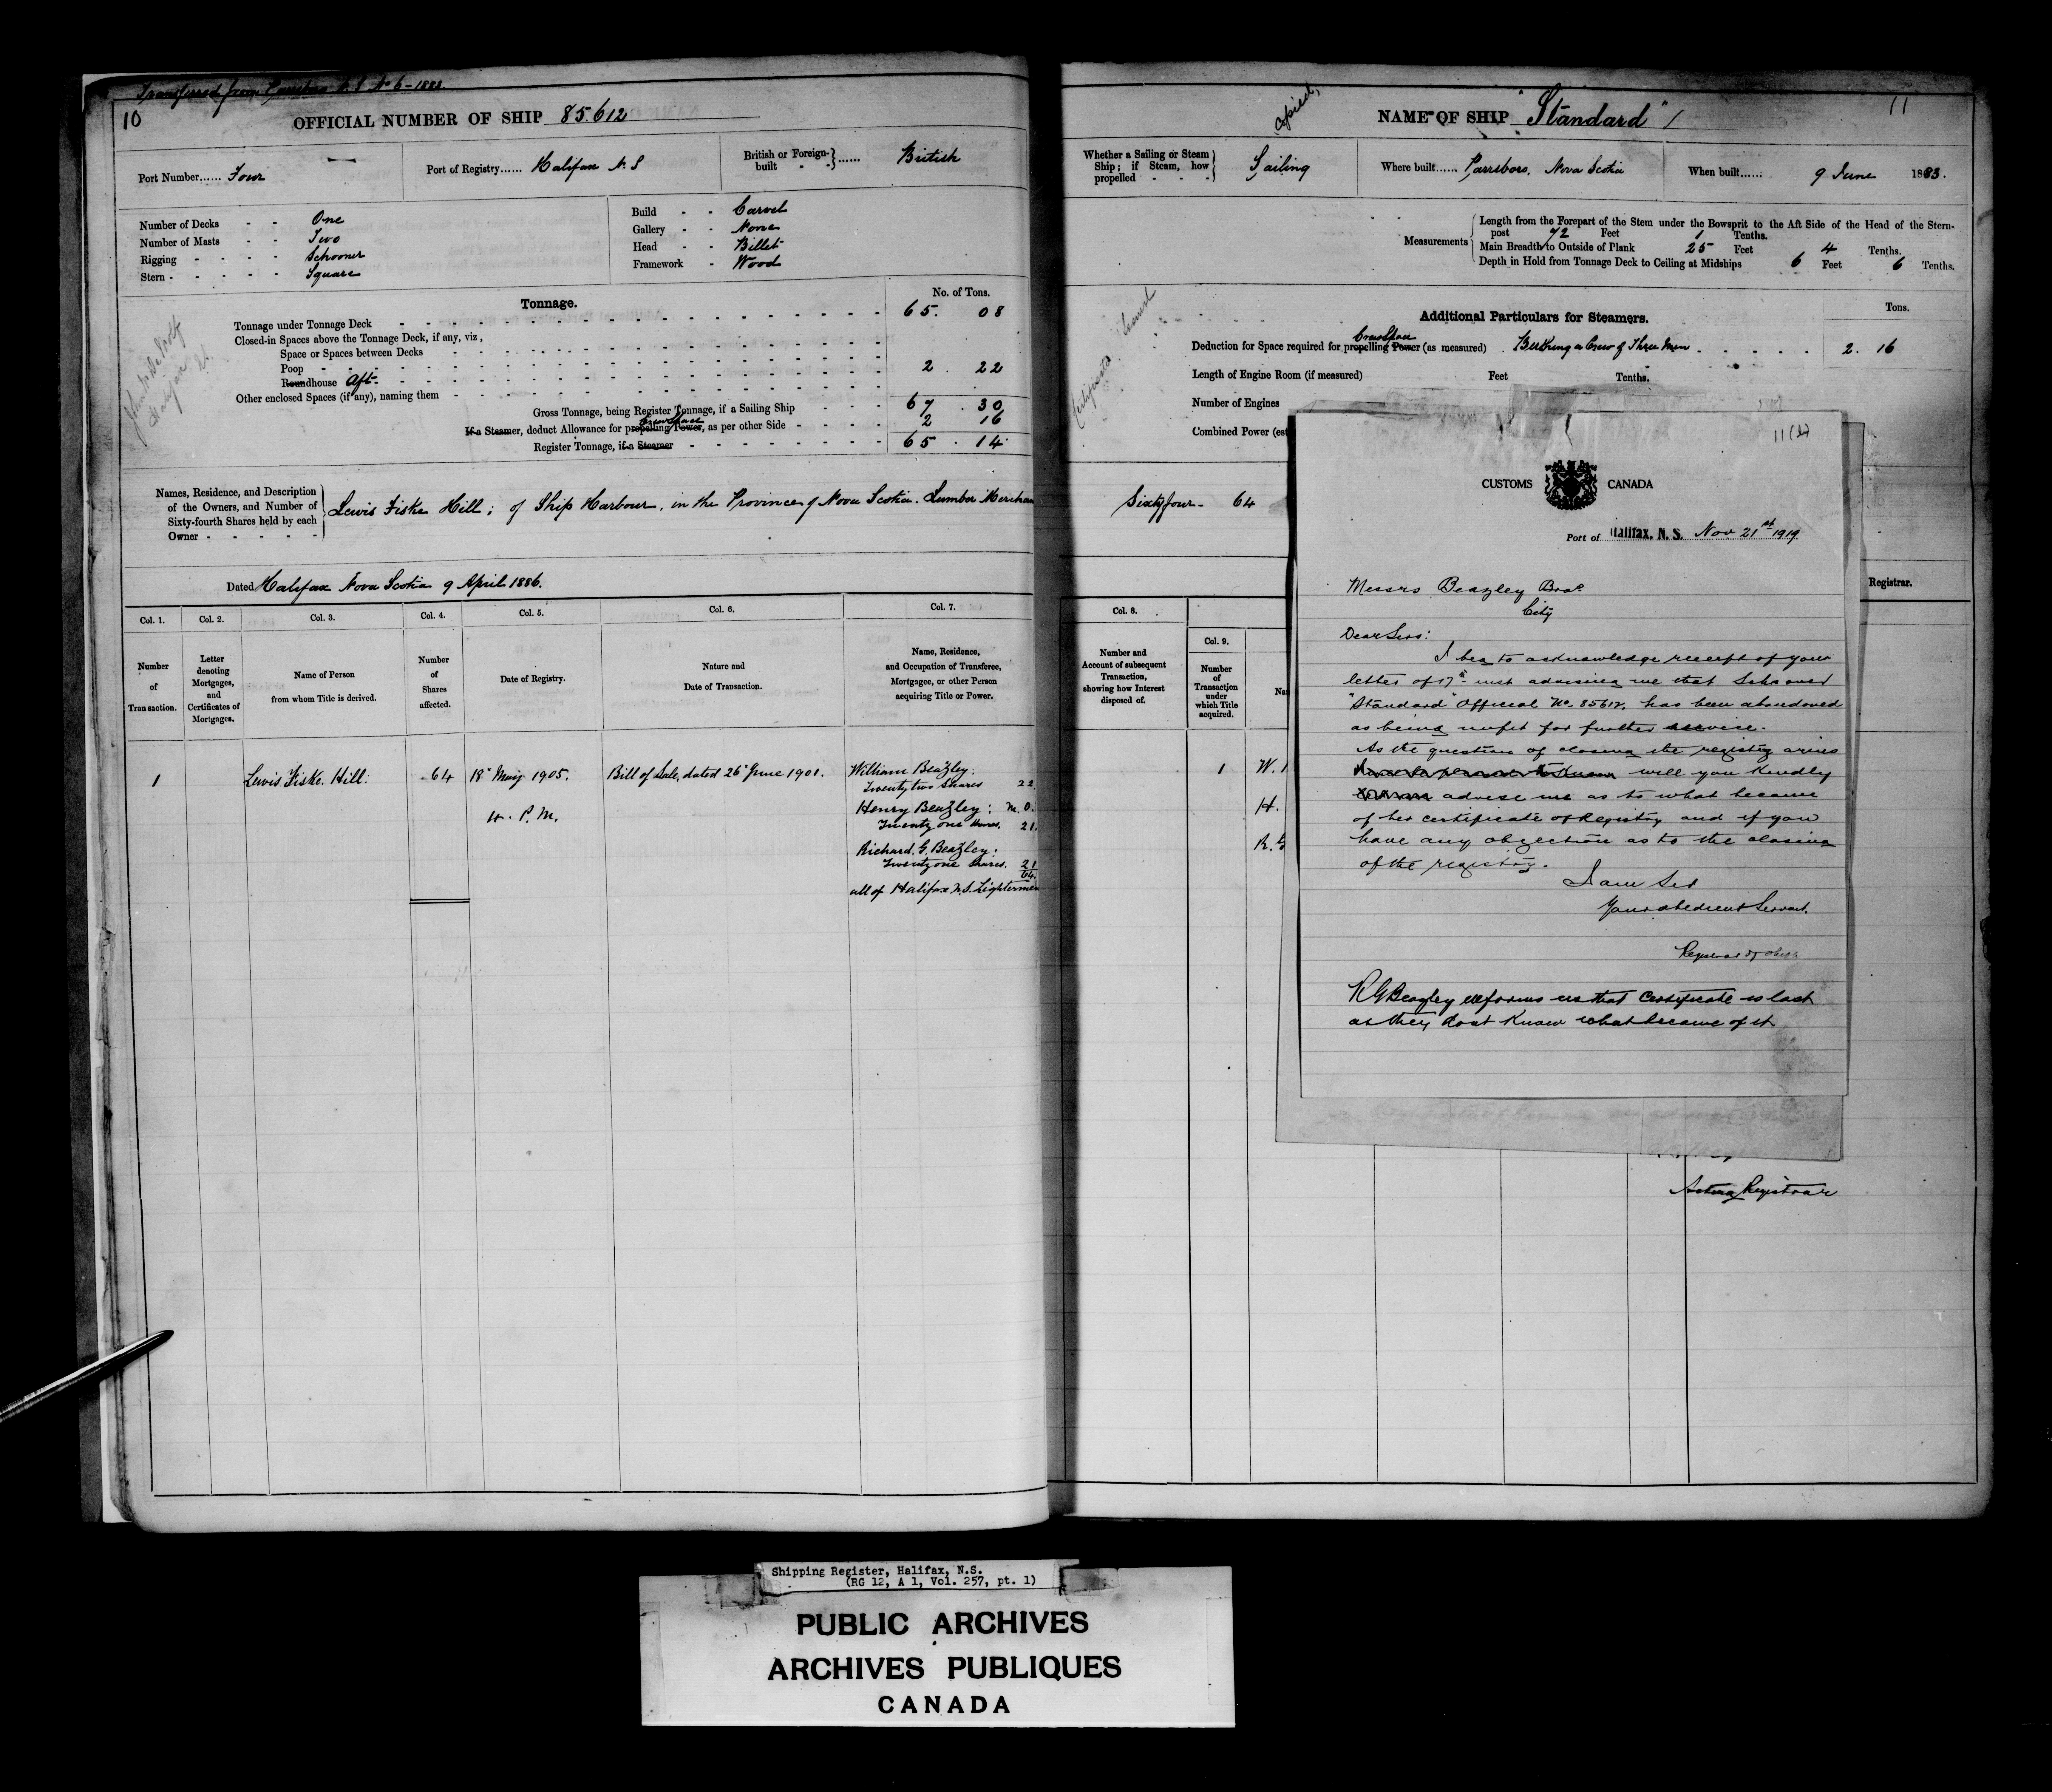 Transferred from N.S. No 6-1883.
10
OFFICIAL NUMBER OF SHIP 85.612
Port Number...... Four
Port of Registry...... Halifax N.S
British or Foreign-built } ...... British
Number of Decks - - One
Number of Masts - - Two
Rigging - - - - Schooner
Stern - - - - - Square
Build - - Carvel
Gallery - - None
Head - - Billet
Framework - Wood
Tonnage.
No. of Tons.
Tonnage under Tonnage Deck 65. 08
Closed-in Spaces above the Tonnage Deck, if any, viz.,
Space or Spaces between Decks
Poop
Roundhouse Aft 2. 22
Other enclosed Spaces (if any), naming them
Gross Tonnage, being Register Tonnage, if a Sailing Ship 67. 30
Crew Space
If a Steamer, deduct Allowance for propelling Power, as per other Side 2 16
Register Tonnage, if a Steamer 65. 14
Names, Residence, and Description
of the Owners, and Number of
Sixty-fourth Shares held by each
Owner
Lewis Fiske Hill; of Ship Harbour, in the Province of Nova Scotia. Lumber Merchan
Dated Halifax Nova Scotia 9 April 1886.
Col. 1. Col. 2. Col. 3. Col. 4. Col. 5. Col. 6. Col. 7.
Number of Transaction.
Letter denoting Mortgages, and Certificates of Mortgages.
Name of Person from whom Title is derived.
Number of Shares affected.
Date of Registry.
Nature and Date of Transaction.
Name, Residence, and Occupation of Transferee, Mortgagee, or other Person acquiring Title or Power.
1 Lewis Fiske Hill. 64 18" May 1905. Bill of Sale, dated 26" June 1901. William Beazley:
Twenty two shares 22
4. P.M. Henry Beazley: M.O.
Twenty one shares. 21.
Richard G. Beazley:
Twenty one shares. 21
64.
all of Halifax N.S. Lightermen
Copied,
NAME OF SHIP "Standard" /
11
Whether a Sailing or Steam
Ship; if Steam, how
propelled - - -
Sailing
Where built...... Parrsboro, Nova Scotia
When built...... 9 June 1883.
Measurements
Length from the Forepart of the Stem under the Bowsprit to the Aft Side of the Head of the Stern-
post 72 Feet 1 Tenths.
Main Breadth to Outside of Plank 25 Feet 4 Tenths.
Depth in Hold from Tonnage Deck to Ceiling at Midships 6 Feet 6 Tenths.
Additional Particulars for Steamers.
Tons.
Crew Space
Deduction for Space required for propelling Power (as measured) Berthing a Crew of Three Men 2. 16
Length of Engine Room (if measured) Feet Tenths.
Number of Engines
Combined Power (est
Sixty four - 64
Registrar.
Col. 8.
Number and Account of subsequent Transaction, showing how Interest disposed of.
Col. 9.
Number of Transaction under which Title acquired.
Na
1 W.
H.
R. G
11 (b)
CUSTOMS CANADA
Port of Halifax, N. S. Nov 21st 1919
Messrs Beazley Bros.
City
Dear Sirs:
I beg to acknowledge receipt of your
letter of 17th inst advising me that Schooner
"Standard" Official No. 85612, has been abandoned
as being unfit for further service.
As the question of closing the registry arises
will you kindly
advise me as to what became
of her certificate of Registry and if you
have any objection as to the closing
of the registry.
I am Sir
Your obedient Servant.
Registrar of Ships
R G Beazley informs us that Certificate is lost
as they dont know what became of it
Acting Registrar
Shipping Register, Halifax, N.S.
(RG 12, A 1, Vol. 257, pt. 1)
PUBLIC ARCHIVES
ARCHIVES PUBLIQUES
CANADA